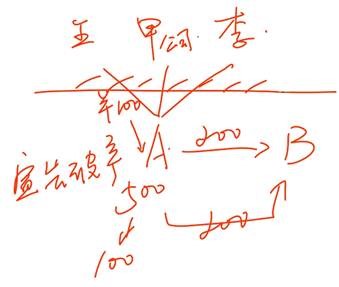 王 甲公司 李
羊100
宣告破产 A 200 B
500 200
100